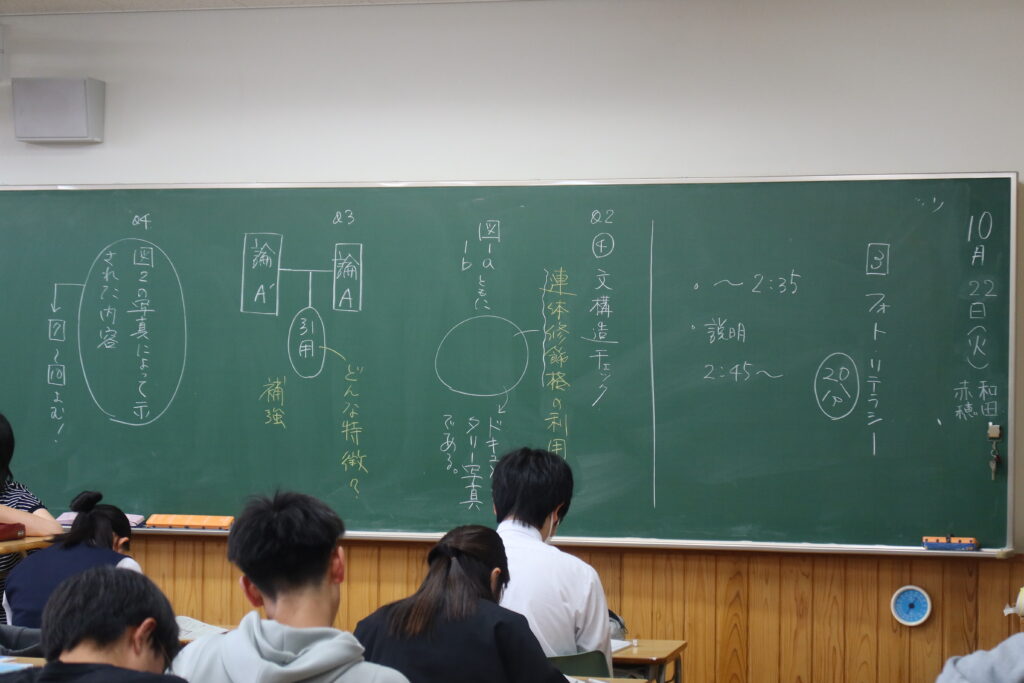 10月22日(火)
和田
赤穂
3 フォトリテラシー
20分
〜2:35
説明
2:45〜
Q2
④ 文構造チェック
連体修飾格の利用
図1a ともに
1b
ドキュメン
タリー写真
である。
Q3
論A
論A'
引用
どんな特徴?
補強
Q4
図2の写真によって示
された内容
⑦〜⑩よむ!